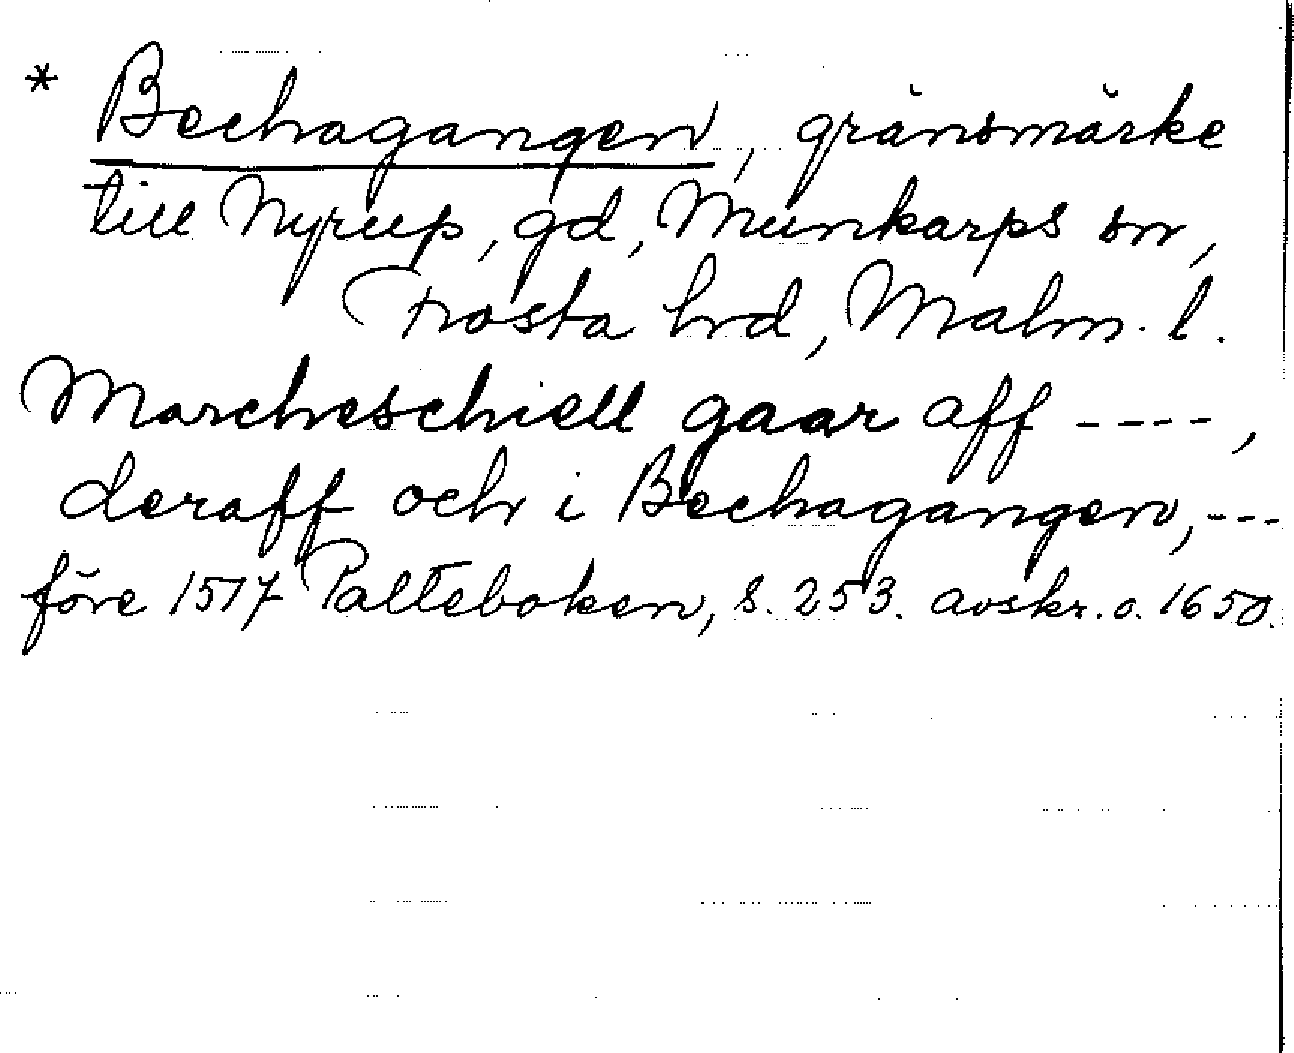 * Bechagangen, gränsmärke
till Nyrup, gd, Munkarps sn,
Frosta hrd, Malm. l.
Marcheschiell gaar aff ----,
deraff och i Bechagangen, ---
före 1517 Palteboken, s. 253. avskr. o. 1650.